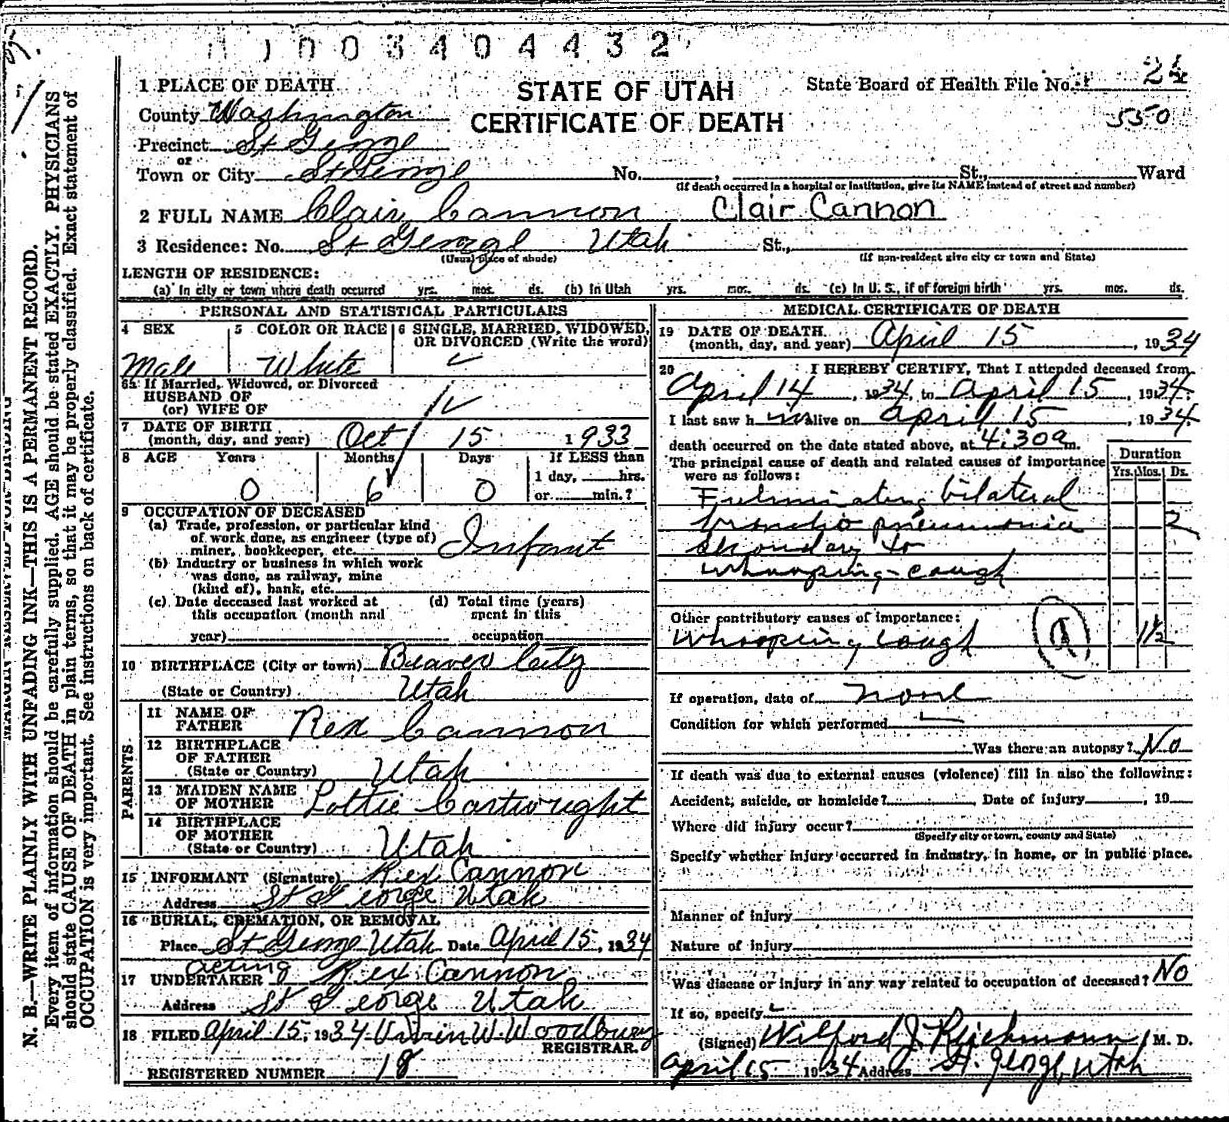 1003404432
1 PLACE OF DEATH
STATE OF UTAH
CERTIFICATE OF DEATH
State Board of Health File No.
550
County Washington
Precinct St George
or
Town or City St George No. , St., Ward
(If death occurred in a hospital or institution, give its NAME instead of street and number)
2 FULL NAME Clair Cannon Clair Cannon
3 Residence: No. St George Utah St.,
(Usual place of abode) (If non-resident give city or town and State)
LENGTH OF RESIDENCE:
(a) In city or town where death occurred yrs. mos. ds. (b) In Utah yrs. mos. ds. (c) In U. S., if of foreign birth yrs. mos. ds.
PERSONAL AND STATISTICAL PARTICULARS
4 SEX
Male
5 COLOR OR RACE
White
6 SINGLE, MARRIED, WIDOWED,
OR DIVORCED (Write the word)
6a If Married, Widowed, or Divorced
HUSBAND OF
(or) WIFE OF
7 DATE OF BIRTH
(month, day, and year) Oct 15 1933
8 AGE Years Months Days If LESS than
0 6 0 1 day, hrs.
or min.?
9 OCCUPATION OF DECEASED
(a) Trade, profession, or particular kind
of work done, as engineer (type of)
miner, bookkeeper, etc. Infant
(b) Industry or business in which work
was done, as railway, mine
(kind of), bank, etc.
(c) Date deceased last worked at
this occupation (month and
year)
(d) Total time (years)
spent in this
occupation
10 BIRTHPLACE (City or town) Beaver City
(State or Country) Utah
PARENTS
11 NAME OF
FATHER Rex Cannon
12 BIRTHPLACE
OF FATHER
(State or Country) Utah
13 MAIDEN NAME
OF MOTHER Lottie Cartwright
14 BIRTHPLACE
OF MOTHER
(State or Country) Utah
15 INFORMANT (Signature) Rex Cannon
Address St George Utah
16 BURIAL, CREMATION, OR REMOVAL
Place St George Utah Date April 15, 1934
acting
17 UNDERTAKER Rex Cannon
Address St George Utah
18 FILED April 15, 1934 W Woodbury
REGISTRAR.
REGISTERED NUMBER 18
MEDICAL CERTIFICATE OF DEATH
19 DATE OF DEATH
(month, day, and year) April 15, 1934
20 I HEREBY CERTIFY, That I attended deceased from
April 14, 1934, to April 15, 1934.
I last saw h im alive on April 15, 1934.
death occurred on the date stated above, at 4:30a m.
The principal cause of death and related causes of importance
were as follows:
Duration
Yrs. Mos. Ds.
Fulminating bilateral
broncho pneumonia 2
secondary to
whooping-cough
Other contributory causes of importance:
Whooping cough 1½
If operation, date of none
Condition for which performed
Was there an autopsy? No
If death was due to external causes (violence) fill in also the following:
Accident, suicide, or homicide? Date of injury , 19
Where did injury occur?
(Specify city or town, county and State)
Specify whether injury occurred in industry, in home, or in public place.
Manner of injury
Nature of injury
Was disease or injury in any way related to occupation of deceased? No
If so, specify
(Signed) Wilford J Reichmann M. D.
April 15 1934 Address St. George, Utah
N. B.—WRITE PLAINLY WITH UNFADING INK—THIS IS A PERMANENT RECORD.
Every item of information should be carefully supplied. AGE should be stated EXACTLY. PHYSICIANS
should state CAUSE OF DEATH in plain terms, so that it may be properly classified. Exact statement of
OCCUPATION is very important. See instructions on back of certificate.